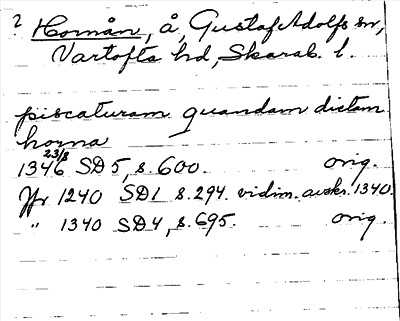 ? Hornån, å, Gustaf Adolfs sn,
Vartofta hd, Skarab. l.
piscaturam quandam dictam
horna
1346 23/8 SD 5, s. 600. orig.
Jfr 1240 SD 1 s. 294. vidim. avskr. 1340.
" 1340 SD 4, s. 695. orig.